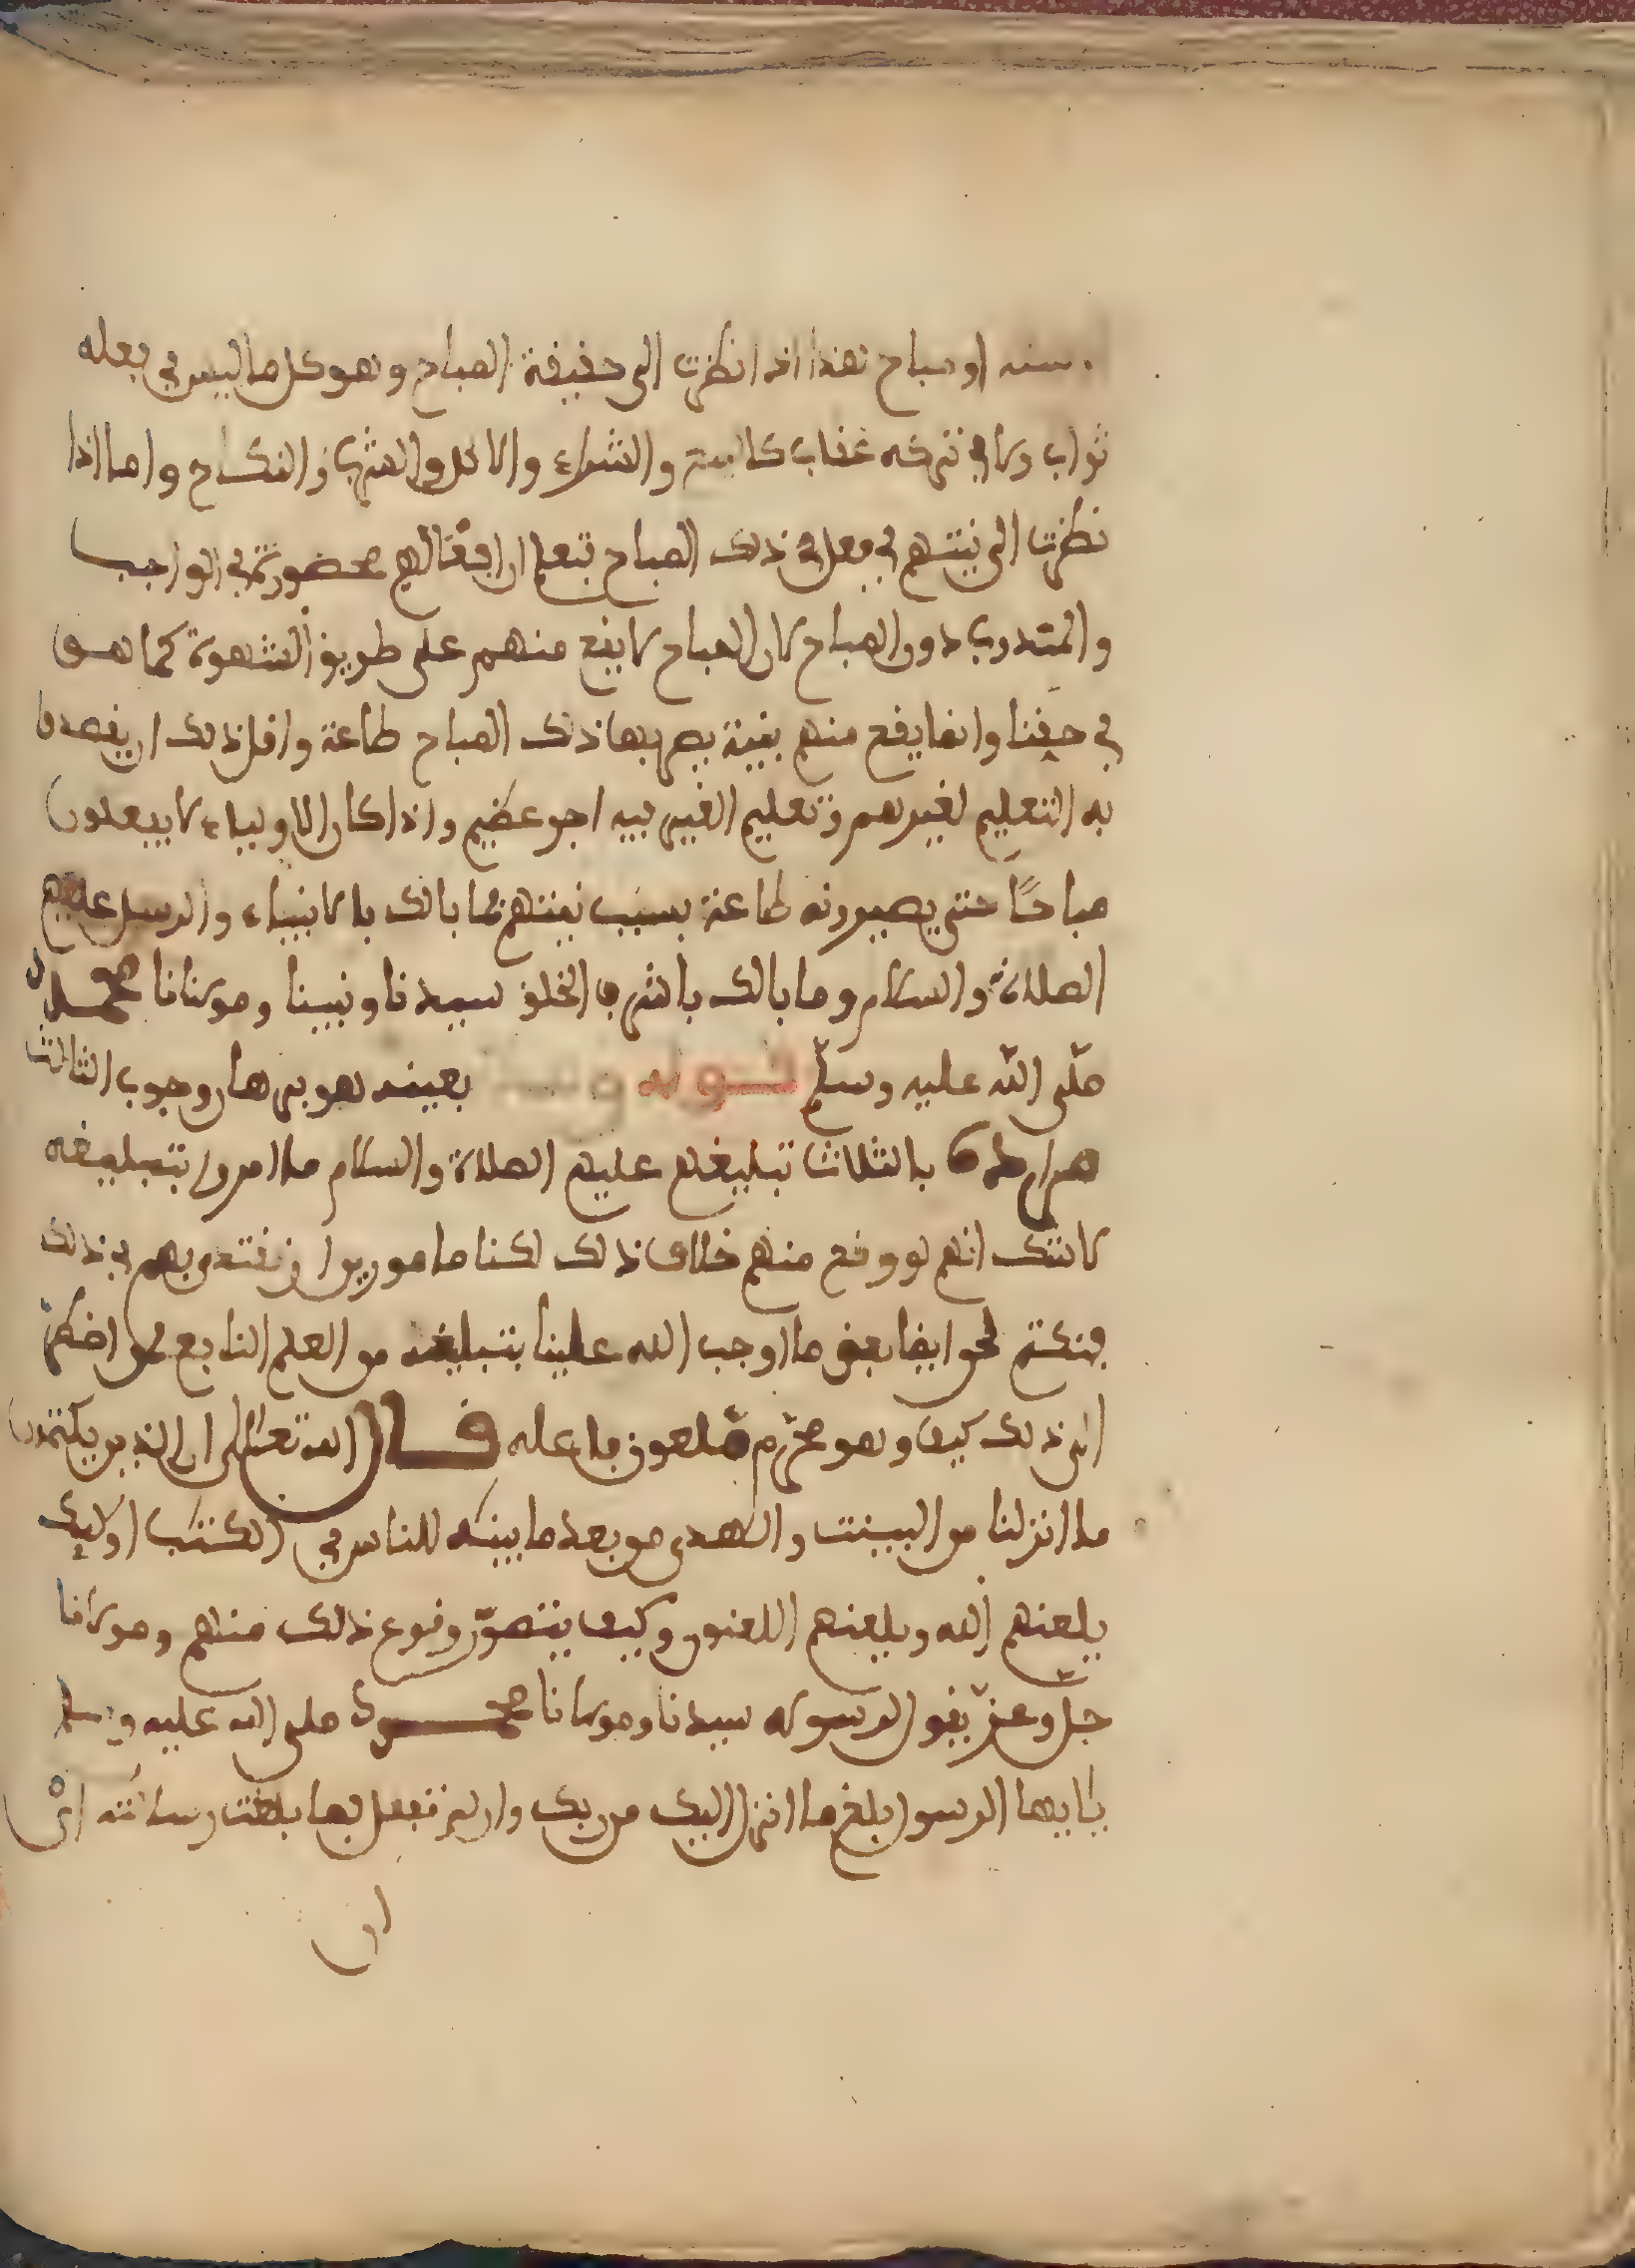 او مباح هذا اذا نظرت الى حقيقة المباح وهو كل ما ليس في فعله
ثواب ولا في تركه عقاب كالبيع والشراء والاكل والشرب والنكاح واما اذا
نظرت الى نيتهم في فعل ذلك المباح فتعلم ان افعالهم محصورة في الواجب
والمندوب دون المباح لان المباح لا يقع منهم على طريق الشهوة كما هو
في حقنا وانما يقع منهم بنية يصير بها ذلك المباح طاعة واقل ذلك ان يقصدوا
به التعليم لغيرهم وتعليم الغير فيه اجر عظيم واذا كان الاولياء لا يفعلون
مباحًا حتى يصيرونه طاعة بسبب نيتهم فما بالك بالانبياء والرسل عليهم
الصلاة والسلام وما بالك باشرف الخلق سيدنا ونبينا ومولانا محمد
صلّى اللّه عليه وسلّم قوله وهذا بعينه هو برهان وجوب الثالث
مراده بالثلاث تبليغهم عليهم الصلاة والسلام ما امروا بتبليغه
لا شك انهم لو وقع منهم خلاف ذلك لكنا مامورين ان نقتدي بهم في ذلك
فنكتم نحن ايضا بعض ما اوجب الله علينا بتبليغه من العلم النافع لمن اضطر
الى ذلك كيف وهو محرّم مّلعون فاعله قال الله تعالى ان الذين يكتمون
ما انزلنا من البينت والهدى من بعد ما بينه للناس في الكتب اوليك
يلعنهم الله ويلعنهم اللعنون وكيف يتصوّر وقوع ذلك منهم ومولانا
جلّ وعزّ يقول لرسوله سيدنا ومولانا محمد صلى الله عليه وسلم
يايها الرسول بلغ ما انزل اليك من ربك وان لم تفعل فما بلغت رسالته اي
ان